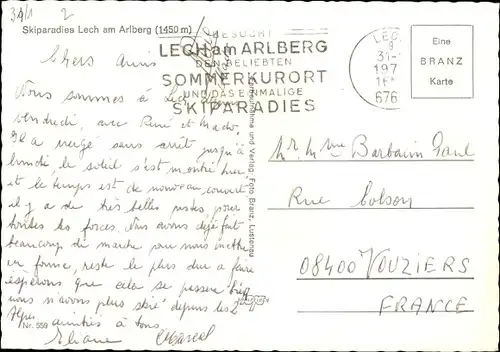 31/1 2
Skiparadies Lech am Arlberg (1450 m)
BESUCHT
LECH am ARLBERG
DEN BELIEBTEN
SOMMERKURORT
UND DAS EINMALIGE
SKIPARADIES
LECH
31-
197
676
Eine
BRANZ
Karte
Chers amis
Nous sommes à Lech depuis
vendredi, avec René et Mado.
Il a neigé sans arrêt jusqu'à
lundi, le soleil s'est montré hier,
et le temps est de nouveau couvert
il y a de très belles pistes, pour
toutes les forces. Nous avons déjà fait
beaucoup de marche pour nous mettre
en forme, reste le plus dur a faire
espérons que cela se passera bien
nous n'avons plus skié depuis les 2
Alpes
amitiés à tous
Eliane Marcel
Nr. 559
und Verlag: Foto Branz, Lustenau
Mr. Mme Barbarin Paul
Rue Colson
08400 VOUZIERS
FRANCE